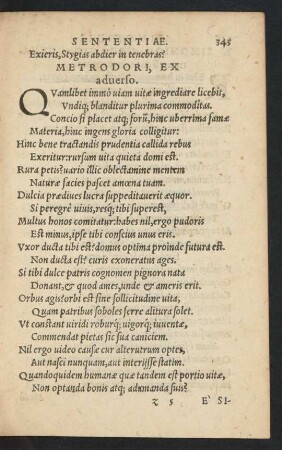 SENTENTIAE. 345
Exieris, Stygias abdier in tenebras?
METRODORI, EX
aduerso.
QVamlibet immò uiam uitæ ingrediare licebit,
Vndiq; blanditur plurima commoditas.
Concio si placet atq; forũ, hinc uberrima famæ
Materia, hinc ingens gloria colligitur:
Hinc bene tractandis prudentia callida rebus
Exeritur: rursum uita quieta domi est.
Rura petis? uario illic oblectamine mentem
Naturæ facies pascet amœna tuam.
Dulcia prædiues lucra suppeditauerit æquor.
Si peregrè uiuis, resq; tibi superest,
Multus honos comitatur: habes nil, ergo pudoris
Est minus, ipse tibi conscius unus eris.
Vxor ducta tibi est? domus optima proinde futura est.
Non ducta est? curis exoneratus ages.
Si tibi dulce patris cognomen pignora nata
Donant, & quod ames, unde & ameris erit.
Orbus agis? orbi est sine sollicitudine uita,
Quam patribus soboles ferre alitura solet.
Vt constant uiridi roburq; uigorq; iuuentæ,
Commendat pietas sic sua caniciem.
Nil ergo uideo causæ cur alterutrum optes,
Aut nasci nunquam, aut interijsse statim.
Quandoquidem humanæ quæ tandem est portio uitæ,
Non optanda bonis atq; adamanda suis?
z 5 E' SI-